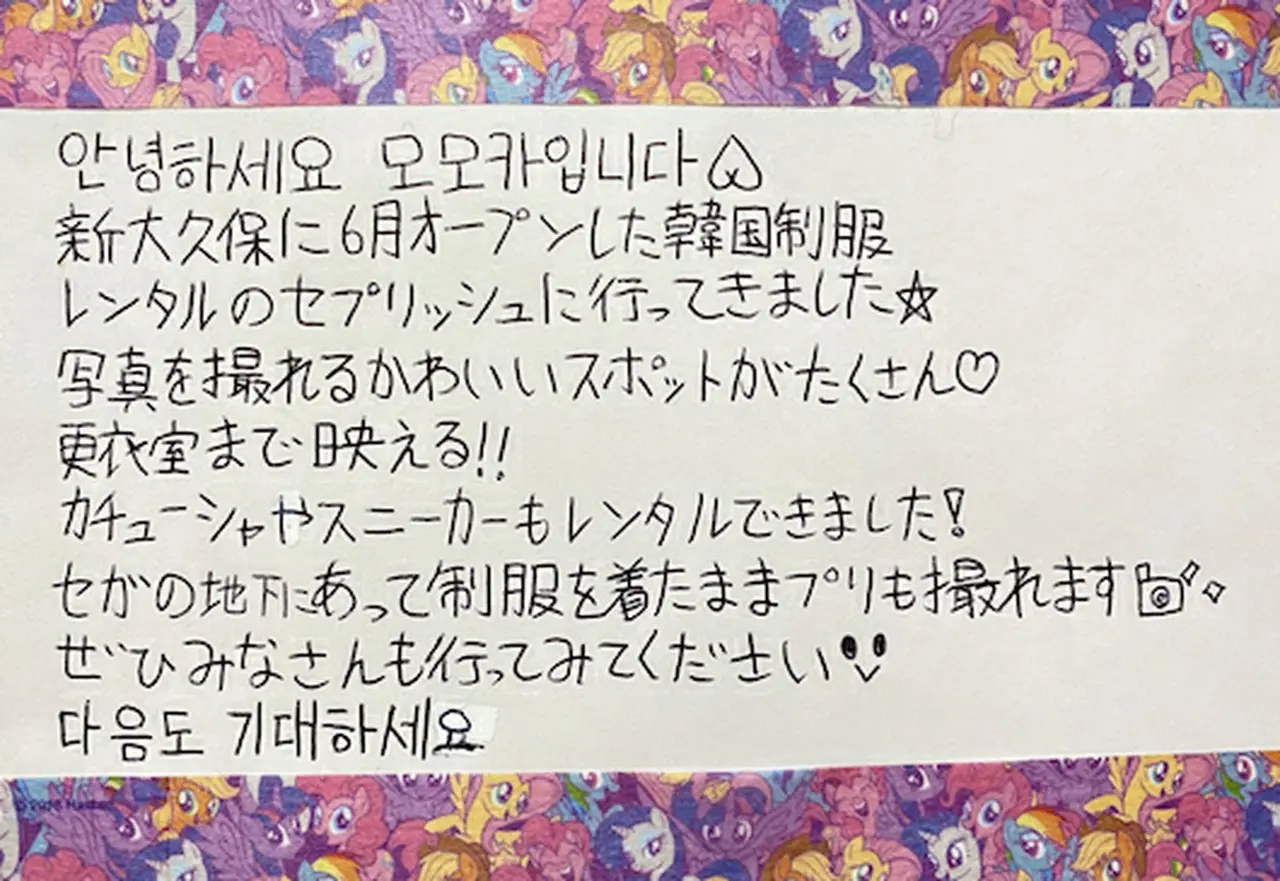 안녕하세요 모모카입니다♤
新大久保に6月オープンした韓国制服
レンタルのセプリッシュに行ってきました☆
写真を撮れるかわいいスポットがたくさん♡
更衣室まで映える!!
カチューシャやスニーカーもレンタルできました!
セガの地下にあって制服を着たままプリも撮れます
ぜひみなさんも行ってみてください
다음도 기대하세요